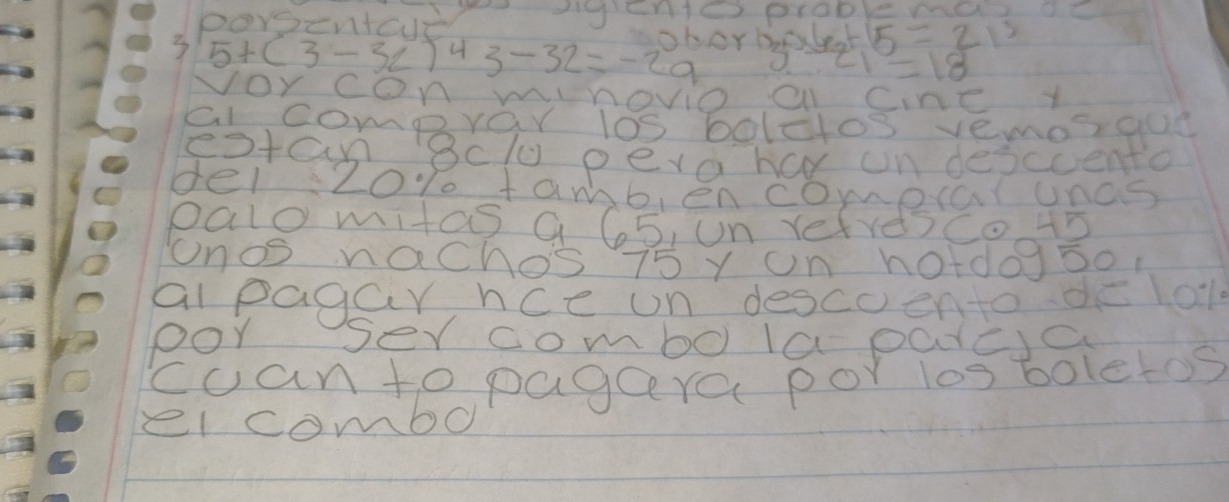 sigientes problemas de
porsentaje
5+(3-32)4 3-32=-29 =18
Voy con minovio al cine y
al comprar los boletos vemos que
estan 8c/u pera hay un desccuento
del 20% tambien comprar unas
palomitas a 65, un refresco 45
unos nachos 75 y un hotdog 50,
al pagar hce un descuento de
por ser combo la pareja
cuanto pagara por los boletos
el combo